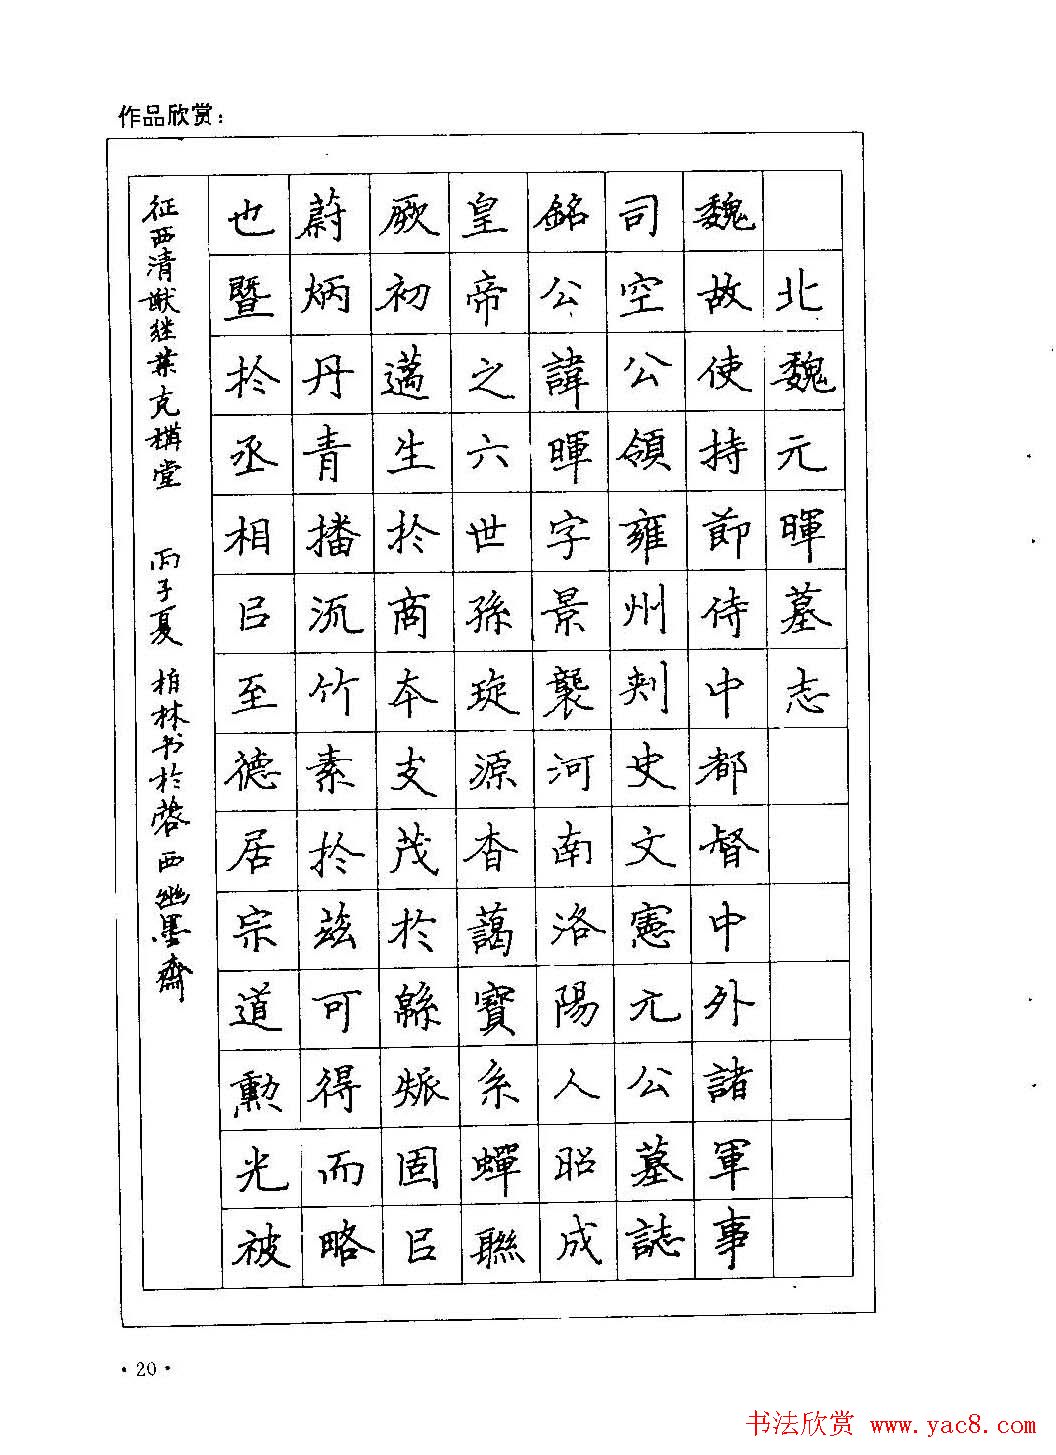 作品欣赏：
北魏元暉墓志
魏故使持節侍中都督中外諸軍事
司空公領雍州刾史文憲元公墓誌
銘公諱暉字景襲河南洛陽人昭成
皇帝之六世孫琁源杳藹寶系蟬聯
厥初邁生於商本支茂於緜瓞固㠯
蔚炳丹青播流竹素於茲可得而略
也暨於丞相㠯至德居宗道勲光被
征西清猷继業克構堂 丙子夏 柏林书於蓉西幽墨齋
·20·
书法欣赏 www.yac8.com